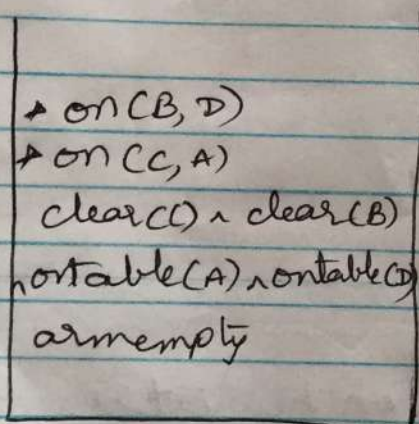 * on(B, D)
* on(C, A)
clear(C) ∧ clear(B)
∧ontable(A) ∧ ontable(D)
armempty